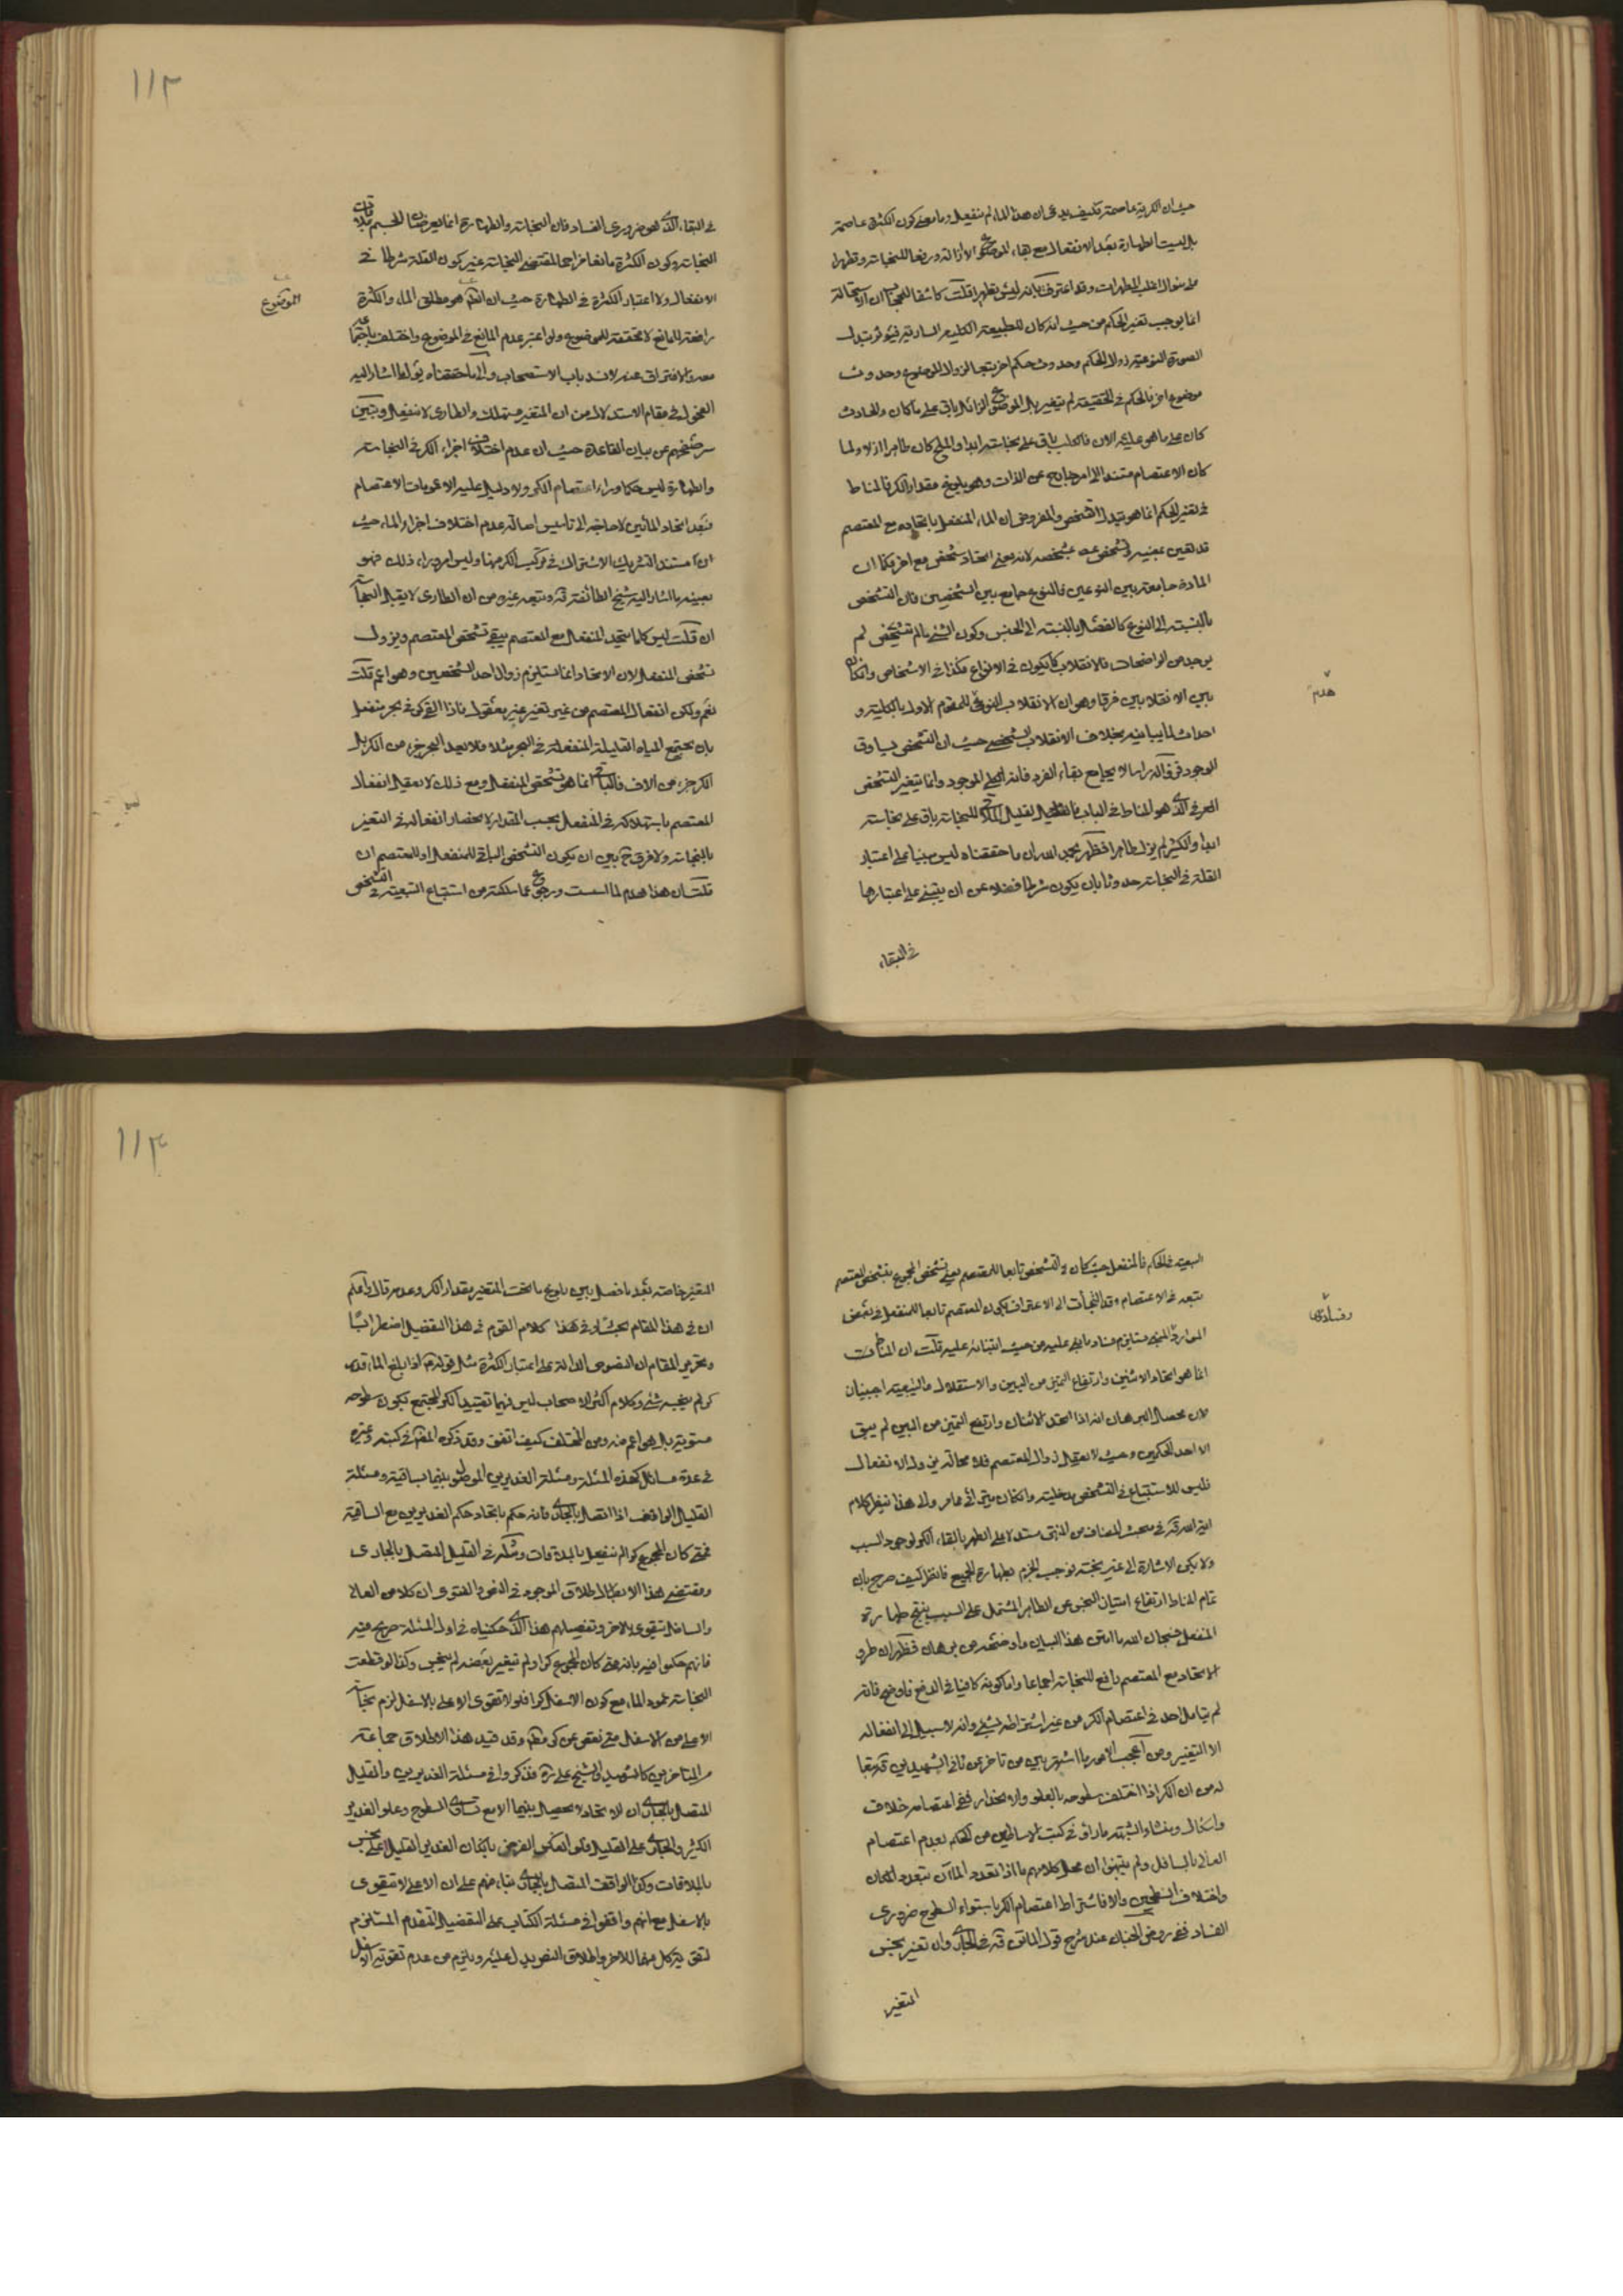 حيث ان الكرية عاصمة فكيف يدعى ان هذا الماء لم ينفعل وما معنى كون الكثرة عاصمة
بل ليست الطهارة بعد الانفعال مع بقاء الموضوع الا ازالة ورفعا للنجاسة وتطهيرا
على منوال اغلب المطهرات وقد اعترف بانه ليس تطهيرا قلت كاشفا للحجاب ان الاستحالة
انما يوجب تغير الحكم من حيث انه كان للطبيعة الكلية السارية فيؤثر تبدل
الصورة النوعية زوال الحكم وحدوث حكم اخر تبعا لزوال الموضوع وحدوث
موضوع اخر فالحكم في الحقيقة لم يتغير بل الموضوع الزائل باق على ما كان والحادث
كان على ما هو عليه الان فالكلب باق على نجاسته ابدا والملح كان طاهرا ازلا ولما
كان الاعتصام مستندا الى امر خارج عن الذات وهو بلوغه مقدار الكر فالمناط
في تغير الحكم انما هو تبدل الشخص والمفروض ان الماء المنفعل باتحاده مع المعتصم
قد تعين بعينه وتشخص بتشخصه لانه معنى اتحاد شخص مع اخر فكما ان
المادة جامعة بين النوعين فالنوع جامع بين الشخصين فان التشخص
بالنسبة الى النوع كالفصل بالنسبة الى الجنس وكون الشيء ما لم يتشخص لم
يوجد من الواضحات فالانقلاب كما يكون في الانواع فكذا في الاشخاص وان كان
بين الانقلابين فرق وهو ان الانقلاب النوعي هدم للمقدم الاول بالكلية و
احداث لما يباينه بخلاف الانقلاب الشخصي حيث ان التشخص يساوق
الوجود
العرفي الذي هو المناط في الباب فالقليل الملاقي للنجاسة باق على نجاسته
ابدا والكثير لم يزل طاهرا فظهر بحمد الله ان ما حققناه ليس مبنيا على اعتبار
القلة في النجاسة حدوثا بان يكون شرطا فضلا عن ان يبتنى على اعتبارها
في البقاء
هدم
١١٣
في البقاء الذي هو ضروري الفساد فان النجاسة والطهارة انما يعرضان الجسم بملاقات
النجاسة وكون الكثرة مانعا مزاحما لمقتضى النجاسة غير كون القلة شرطا في
الانفعال ولا اعتبار الكثرة في الطهارة حيث ان الموضوع هو مطلق الماء والكثرة
رافعة للمانع لا محققة للموضوع ولو اعتبر عدم المانع في الموضوع واختلف باجتماعه
معه والافتراق عنه لانسد باب الاستصحاب والى ما حققناه يؤل ما اشار اليه
الفحول في مقام الاستدلال من ان المتغير مستهلك والطاري لا ينفعل ويتبين
سر صفحهم عن بيان القاعدة حيث ان عدم اختلاف اجزاء الكر في النجاسة
والطهارة ليس حكما وراء اعتصام الكر ولا دليل عليه الا عمومات الاعتصام
فبعد اتحاد المائين لا حاجة الى تاسيس اصالة عدم اختلاف اجزاء الماء حيث
ان مستند التشريك الاشتراك في تركيب الكر منها وليس امرا وراء ذلك فهو
بعينه ما اشار اليه شيخ الطائفة قده وتبعه غيره من ان الطاري لا يقبل النجاسة
ان قلت ليس كلما يتحد المنفعل مع المعتصم يبقى تشخص المعتصم ويزول
تشخص المنفعل لان الاتحاد انما يستلزم زوال احد الشخصين وهو اعم قلت
نعم ولكن انفعال المعتصم من غير تغير غير معقول فاذا القي كر في بحر منفعل
بان يجتمع المياه القليلة المنفعلة في البحر مثلا فلا يعد البحر جزء من الكر بل
الكر جزء من آلاف فالباقي انما هو تشخص المنفعل ومع ذلك لا يعقل انفعال
المعتصم باستهلاكه في المنفعل بحسب المقدار لانحصار انفعاله في التغير
بالنجاسة ولا فرق ح بين ان يكون التشخص الباقي للمنفعل او للمعتصم ان
قلت ان هذا هدم لما اسست ورجوع عما سلكته من استتباع التبعية في التشخص
الموضوع
التبعية في الحكم فالمنفعل حيث كان في التشخص تابعا للمعتصم بمعنى تشخص المجموع بتشخص المعتصم
تبعه في الاعتصام وقد التجأت الى الاعتراف بكون المعتصم تابعا للمنفعل في بعض
الموارد المبني مستلزم فساد ما بنى عليه من حيث ابتنائه عليه قلت ان المناط
انما هو اتحاد الاثنين وارتفاع التميز من البين والاستقلال والتبعية اجنبيان
لان محصل البرهان انه اذا اتحد الاثنان وارتفع التميز من البين لم يبق
الا احد الحكمين وحيث لا يعقل زوال المعتصم فلا محالة يزول الانفعال
فليس للاستتباع في التشخص مدخلية وان كان يترائى مما مر والى هذا ينظر كلام
اية الله قده في مبحث المضاف من المنتهى مستدلا على الطهر بالقاء الكر لوجود السبب
ولا يمكن الاشارة الى عين نجسة فوجب الجزم بطهارة الجميع فانظر كيف صرح بان
تمام المناط ارتفاع امتياز النجس عن الطاهر المشتمل على السبب ينتج طهارة
المنفعل فسبحان الله ما امتن هذا البيان وما اوضحه من برهان فظهر ان طرو
الاتحاد مع المعتصم رافع للنجاسة اجماعا واما كونه كافيا في الدفع فاوضح فانه
لم يتامل احد في اعتصام الكر من غير اشتراطه بشيء وانه لا سبيل الى انفعاله
الا التغيير ومن اعجب الامور ما اشتهر بين من تاخر عن ثاني الشهيدين قده تبعا
له من ان الكر اذا اختلف سطوحه بالعلو والانحدار ففي اعتصامه خلاف
واشكال ومنشاء الشبهة ما راوا في كتب الاساطين من الحكم بعدم اعتصام
العالي بالسافل ولم يتبهوا ان محل كلامهم ما اذا تعدد الماآن بتعدد المكان
واختلاف السطحين والا فاشتراط اعتصام الكر باستواء السطوح ضروري
الفساد ففي روض الجنان عند شرح قول الماتن قده في الجاري وان تغير بعضه نجس
المتغير
وفساد
١١٤
المتغير خاصة بعد ما فصل بين بلوغ ما تحت المتغير بمقدار الكر وعدمه قال واعلم
ان في هذا المقام بحثا وفي كلام القوم في هذا التفصيل اضطرابا
وتحرير المقام ان النصوص الدالة على اعتبار الكثرة مثل قوله ع اذا بلغ الماء قدر
كر لم ينجسه شيء وكلام اكثر الاصحاب ليس فيها تقييد الكر المجتمع بكون سطوحه
مستوية بل هو اعم منه ومن المختلف كيف اتفق وقد ذكره المصنف في كتبه وغيره
في عدة مسائل كهذه المسئلة ومسئلة الغديرين الموصول بينهما بساقية ومسئلة
القليل الواقف اذا اتصل بالجاري فانه حكم باتحاد حكم الغديرين مع الساقية
فمتى كان المجموع كرا لم ينفعل بالملاقات ومثله في القليل المتصل بالجاري
ومقتضى هذا الاطلاق الموجود في النص والفتوى ان كلا من العالي
والسافل يتقوى بالاخر وتفصيلهم هذا الذي حكيناه في اول المسئلة صريح فيه
فانهم حكموا فيه بانه متى كان المجموع كرا ولم يتغير بعضه لم ينجس وكذا لو قطعت
النجاسة عمود الماء مع كون الاسفل كرا فلو لا تقوى الاعلى بالاسفل لزم نجاسة
الاعلى من الاسفل متى نقص عن كر وقد قيد هذا الاطلاق جماعة
من المتاخرين كالشهيد والشيخ علي ره فذكروا في مسئلة الغديرين والقليل
المتصل بالجاري ان الاتحاد لا يحصل بينهما الا مع تساوي السطوح وعلو الغدير
الكثير والجاري على القليل فلو انعكس الفرض بان كان الغدير القليل اعلى نجس
بالملاقات وكذا الواقف المتصل بالجاري بناء منهم على ان الاعلى لا يتقوى
بالاسفل مع انهم وافقوا في مسئلة الكتاب على التفصيل المتقدم المستلزم
لتقوية كل منهما للاخر واطلاق النص يدل عليه ويلزم من عدم تقوية الاسفل